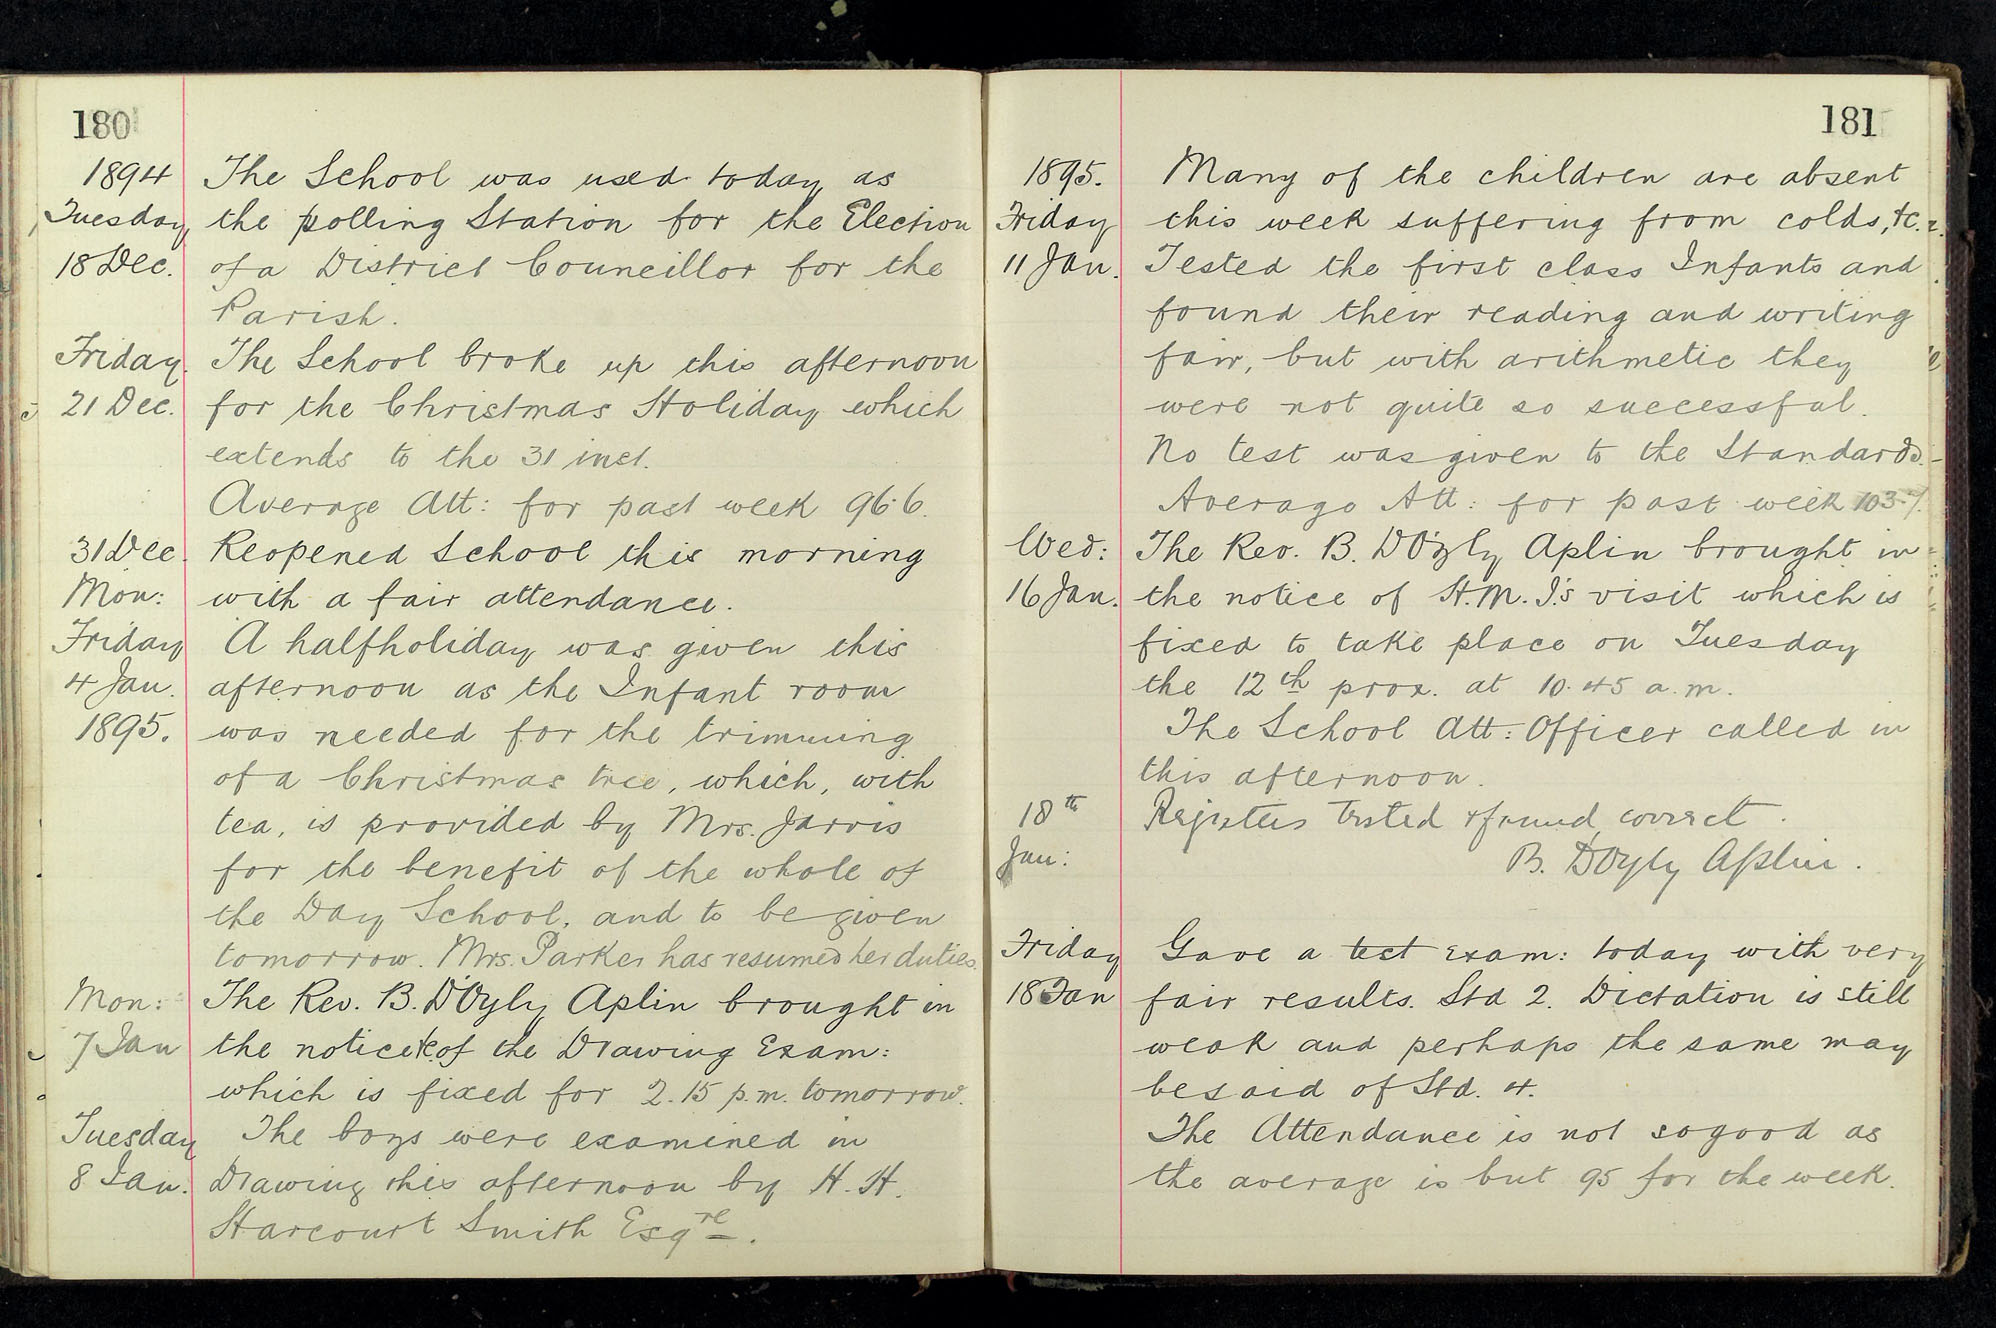 180
1894 The School was used today as
Tuesday the polling Station for the Election
18 Dec. of a District Councillor for the
Parish.
Friday. The School broke up this afternoon
21 Dec. for the Christmas Holiday which
extends to the 31 inst.
Average Att: for past week 96.6.
31 Dec. Reopened School this morning
Mon: with a fair attendance.
Friday A halfholiday was given this
4 Jan. afternoon as the Infant room
1895. was needed for the trimming
of a Christmas tree, which, with
tea, is provided by Mrs. Jarvis
for the benefit of the whole of
the Day School, and to be given
tomorrow. Mrs. Parker has resumed her duties.
Mon: The Rev. B. D'Oyly Aplin brought in
7 Jan the notice of the Drawing Exam:
which is fixed for 2.15 p.m. tomorrow.
Tuesday The boys were examined in
8 Jan. Drawing this afternoon by H. H.
Harcourt Smith Esqre.
181
1895. Many of the children are absent
Friday this week suffering from colds, &c.
11 Jan. Tested the first class Infants and
found their reading and writing
fair, but with arithmetic they
were not quite so successful.
No test was given to the Standards.
Average Att: for past week 103.
Wed: The Rev. B. D'Oyly Aplin brought in
16 Jan. the notice of H.M.I.'s visit which is
fixed to take place on Tuesday
the 12th prox. at 10.45 a.m.
The School Att: Officer called in
this afternoon.
18th Registers tested & found correct.
Jan: B. D'Oyly Aplin.
Friday Gave a test Exam: today with very
18 Jan fair results. Std 2. Dictation is still
weak and perhaps the same may
be said of Std. 4.
The Attendance is not so good as
the average is but 95 for the week.